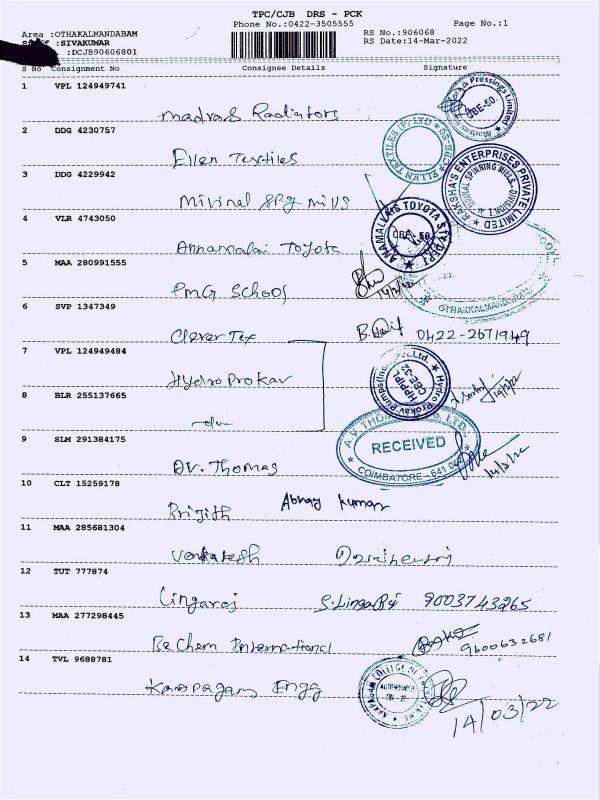 TPC/CJB DRS - PCK
Phone No.:0422-3505555
Page No.:1
Area :OTHAKALMANDABAM
RS No.:906068
:SIVAKUMAR
RS Date:14-Mar-2022
:DCJB90606801
S No Consignment No Consignee Details Signature
1 VPL 124949741
Madras Radiators
& Pressings Limited
CBE-50.
2 DDG 4230757
Ellen Textiles
ELLEN TEXTILES (P) LTD
CBE-50
3 DDG 4229942
Mivinal SPg mills
RAKSHA'S ENTERPRISES PRIVATE LIMITED
SPINNING MILLS, DIVISION
4 VLR 4743050
Annamalai Toyota
ANAMALLAIS TOYOTA
CBE-50
5 MAA 280991555
PMG School
14/3/22
OTHAKKALMANDAPAM
6 SVP 1347349
Clever Tex
0422-2671949
7 VPL 124949484
Hydro Prokav
Hydro Prokav Pumps (India) Pvt. Ltd.
HPPIPL
14/3/22
8 BLR 255137665
-do-
9 SLM 291384175
AV. Thomas
A.V. THOMAS
RECEIVED
COIMBATORE - 641
14/3/22
10 CLT 15259178
Brijith
Abhay Kumar
11 MAA 285681304
Venkatesh
12 TUT 777874
Lingaraj
S. Lingaraj 9003743265
13 MAA 277298445
Be Chem International
9600632681
14 TVL 9688781
Karpagam Engg
KARPAGAM COLLEGE OF
14/03/22